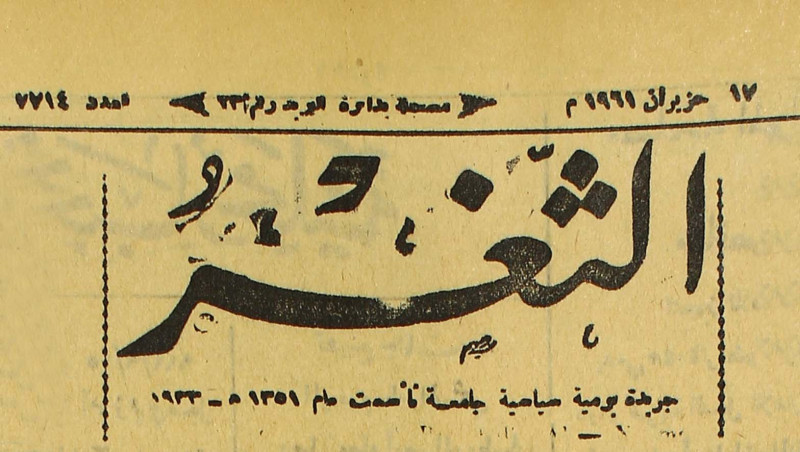 ١٧ حزيران ١٩٦١ م مسجلة بدائرة البريد رقم ٢٣ العدد ٧٧١٤
الثَّغْرُ
جريدة يومية سياسية جامعة تأسست عام ١٣٥١ ه ـ ١٩٣٣